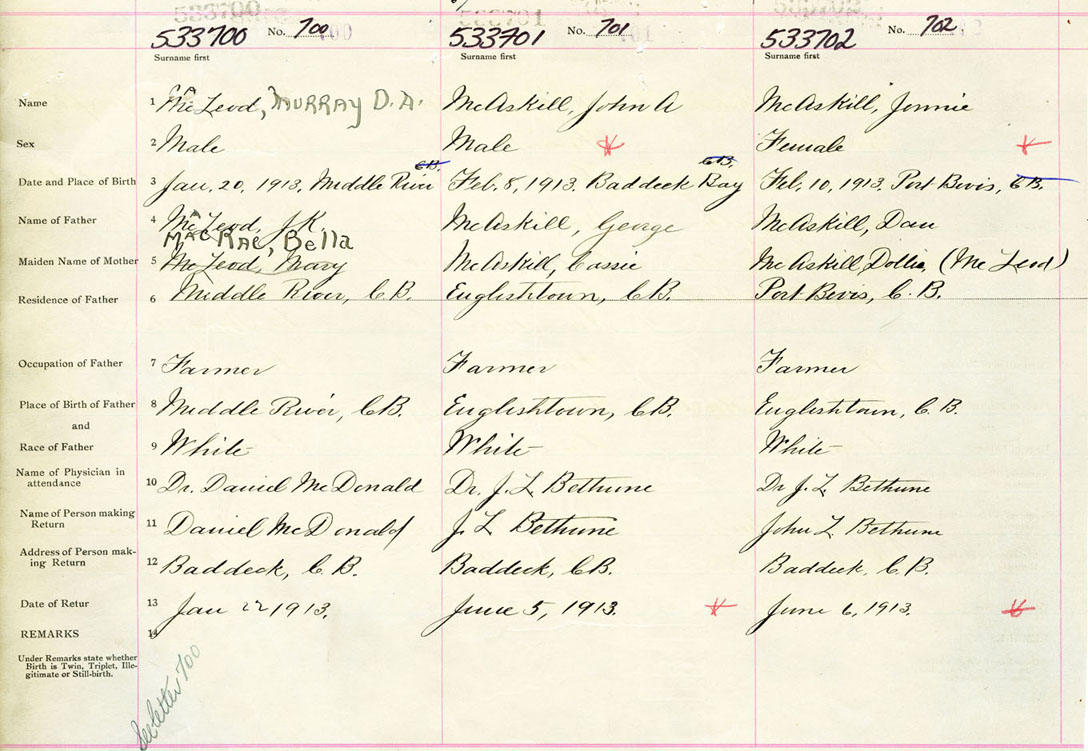 533700 No. 700 533701 No. 701 533702 No. 702
Surname first Surname first Surname first
Name 1 McLeod, MURRAY D.A. McAskill, John A McAskill, Jennie
Sex 2 Male Male Female
C.B. C.B.
Date and Place of Birth 3 Jan. 20, 1913. Middle River Feb. 8, 1913. Baddeck Bay Feb. 10, 1913. Port Bevis, C.B.
Name of Father 4 McLeod, J.R. McAskill, George McAskill, Dan
MacRae, Bella
Maiden Name of Mother 5 McLeod, Mary McAskill, Cassie McAskill Dollie (McLeod)
Residence of Father 6 Middle River, C.B. Englishtown, C.B. Port Bevis, C.B.
Occupation of Father 7 Farmer Farmer Farmer
Place of Birth of Father 8 Middle River, C.B. Englishtown, C.B. Englishtown, C.B.
and
Race of Father 9 White White White
Name of Physician in
attendance 10 Dr. Daniel McDonald Dr. J. L Bethune Dr J. L Bethune
Name of Person making
Return 11 Daniel McDonald J. L Bethune John L Bethune
Address of Person mak-
ing Return 12 Baddeck, C.B. Baddeck, C.B. Baddeck, C.B.
Date of Retur 13 Jan 22 1913. June 5, 1913. June 6, 1913.
REMARKS 14
Under Remarks state whether
Birth is Twin, Triplet, Ille-
gitimate or Still-birth.
See letter 700